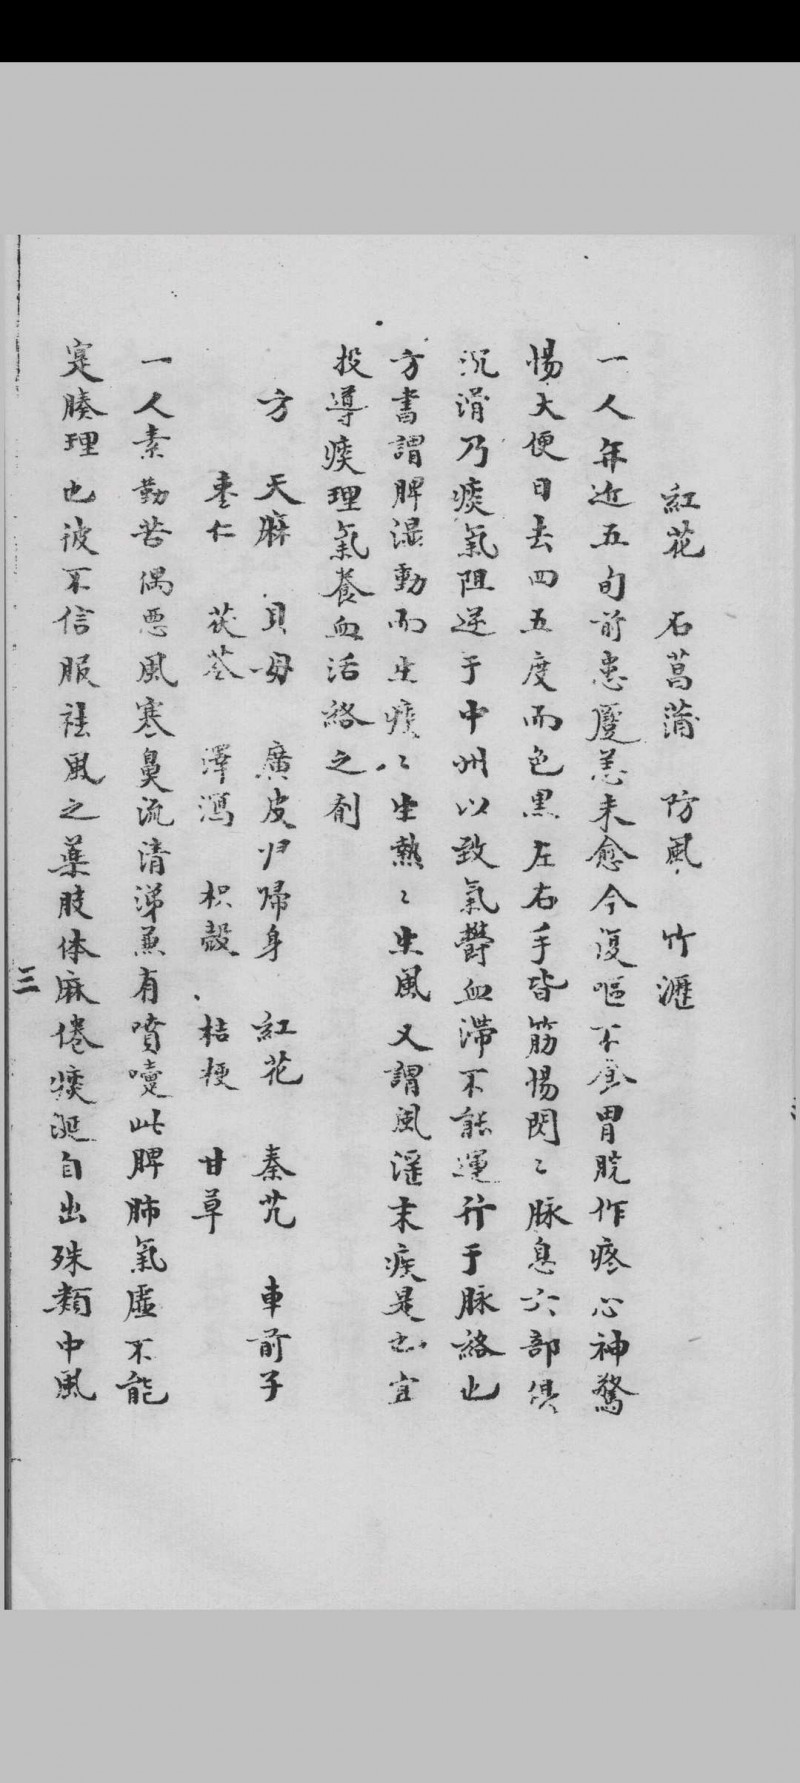 紅花　石菖蒲　防風　竹瀝
一人年近五旬前患廢恙未愈今復嘔不食胃脘作疼心神驚
惕大便日去四五度而色黑左右手皆筋惕閃〻脉息六部俱
沉滑乃痰氣阻逆于中州以致氣鬱血滯不能運行于脉絡也
方書謂脾湿動而生痰〻生熱〻生風又謂風滛末疾是也宜
投導痰理氣養血活絡之劑
方　天麻　貝母　廣皮　归歸身　紅花　秦艽　車前子
棗仁　茯苓　澤瀉　枳殼　桔梗　甘草
一人素勤苦偶悪風寒鼻流清涕兼有噴嚏此脾肺氣虛不能
寔腠理也彼不信服祛風之藥肢体麻倦痰涎自出殊類中風
三